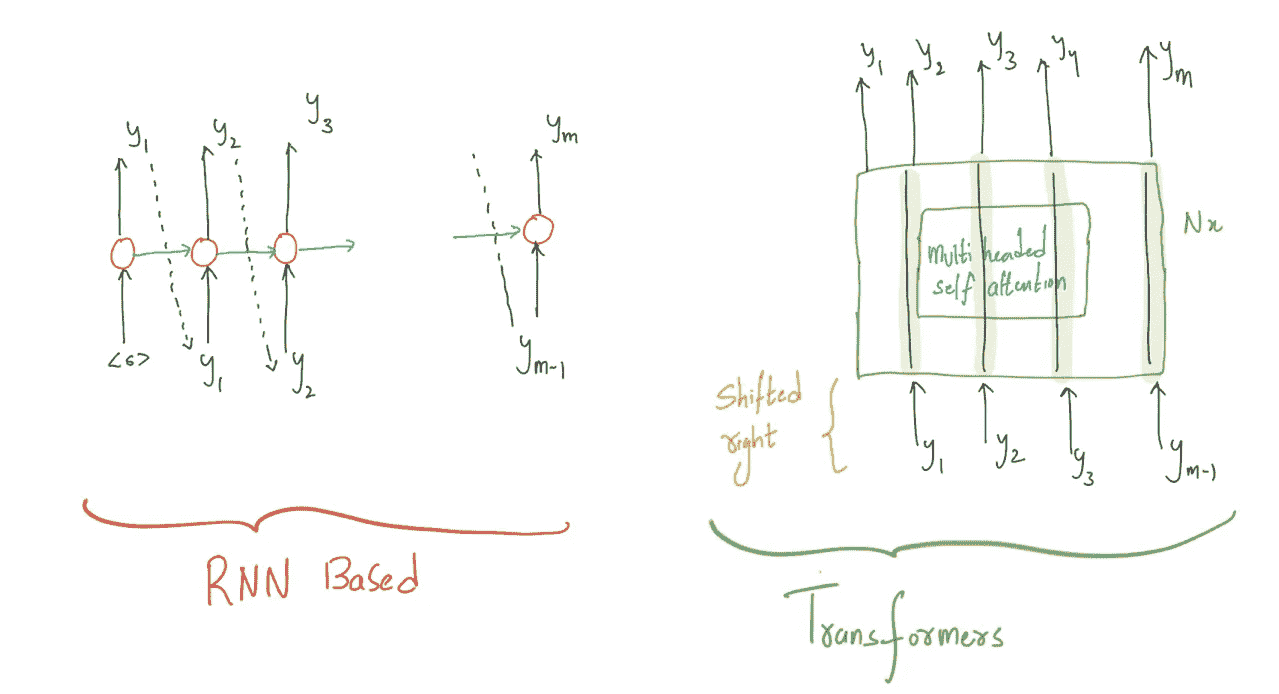 y1 y2 y3 ym
<s> y1 y2 ym-1
RNN Based
y1 y2 y3 y4 ym
Multi headed
self attention
Nx
Shifted
right
y1 y2 y3 ym-1
Transformers